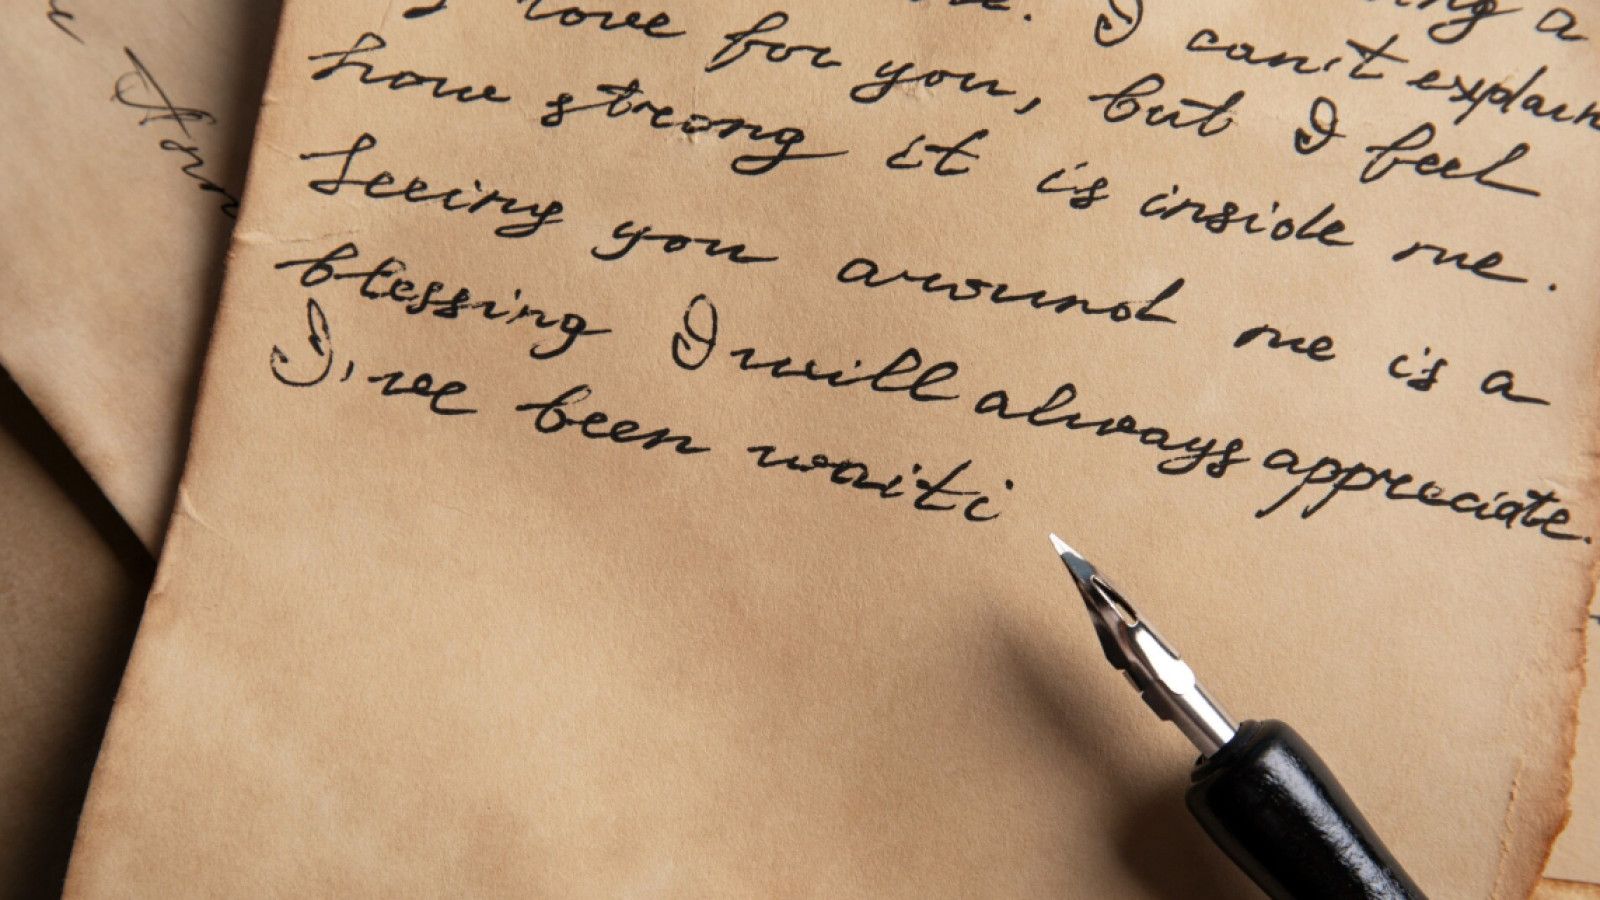 ing a
love for you, but I can't explain
how strong it is inside me. I feel
Seeing you around me is a
blessing I will always appreciate.
I've been waiti